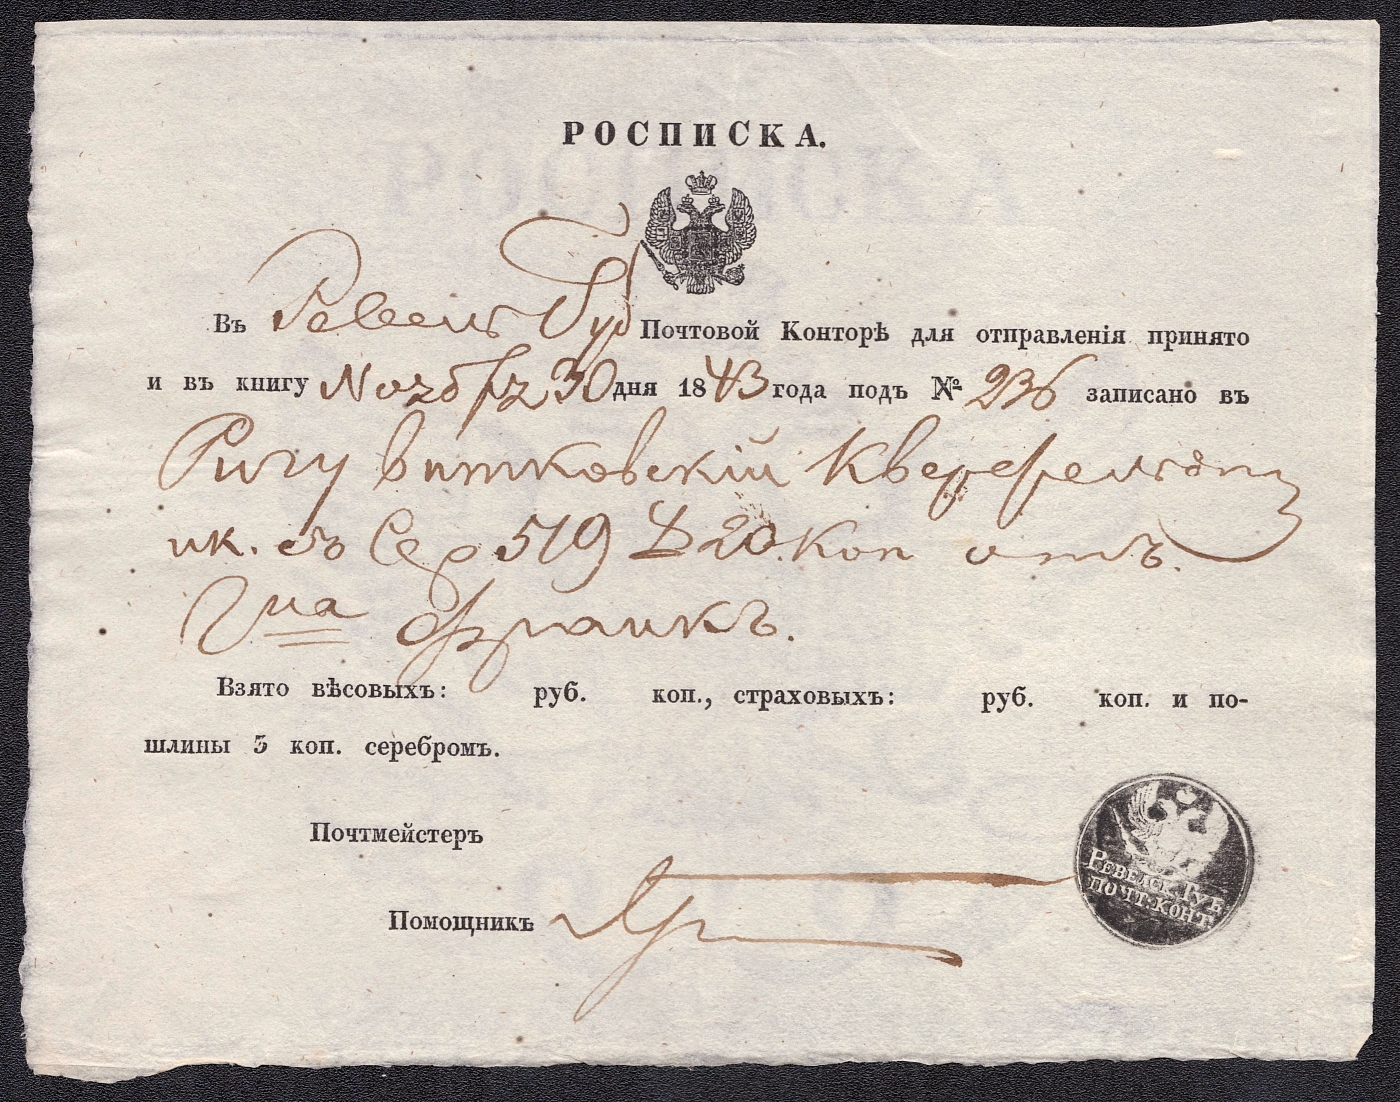 РОСПИСКА.
Въ Ревельс Губ Почтовой Конторѣ для отправленія принято
и въ книгу Ноября 30 дня 1843 года подъ № 236 записано въ
Ригу витковскій
ик. съ Сер 519 20 коп отъ
Гна Франкъ.
Взято вѣсовыхъ: руб. коп., страховыхъ: руб. коп. и по-
шлины 3 коп. серебромъ.
Почтмейстеръ
Помощникъ
РЕВЕЛСК. ГУБ.
ПОЧТ. КОНТ.